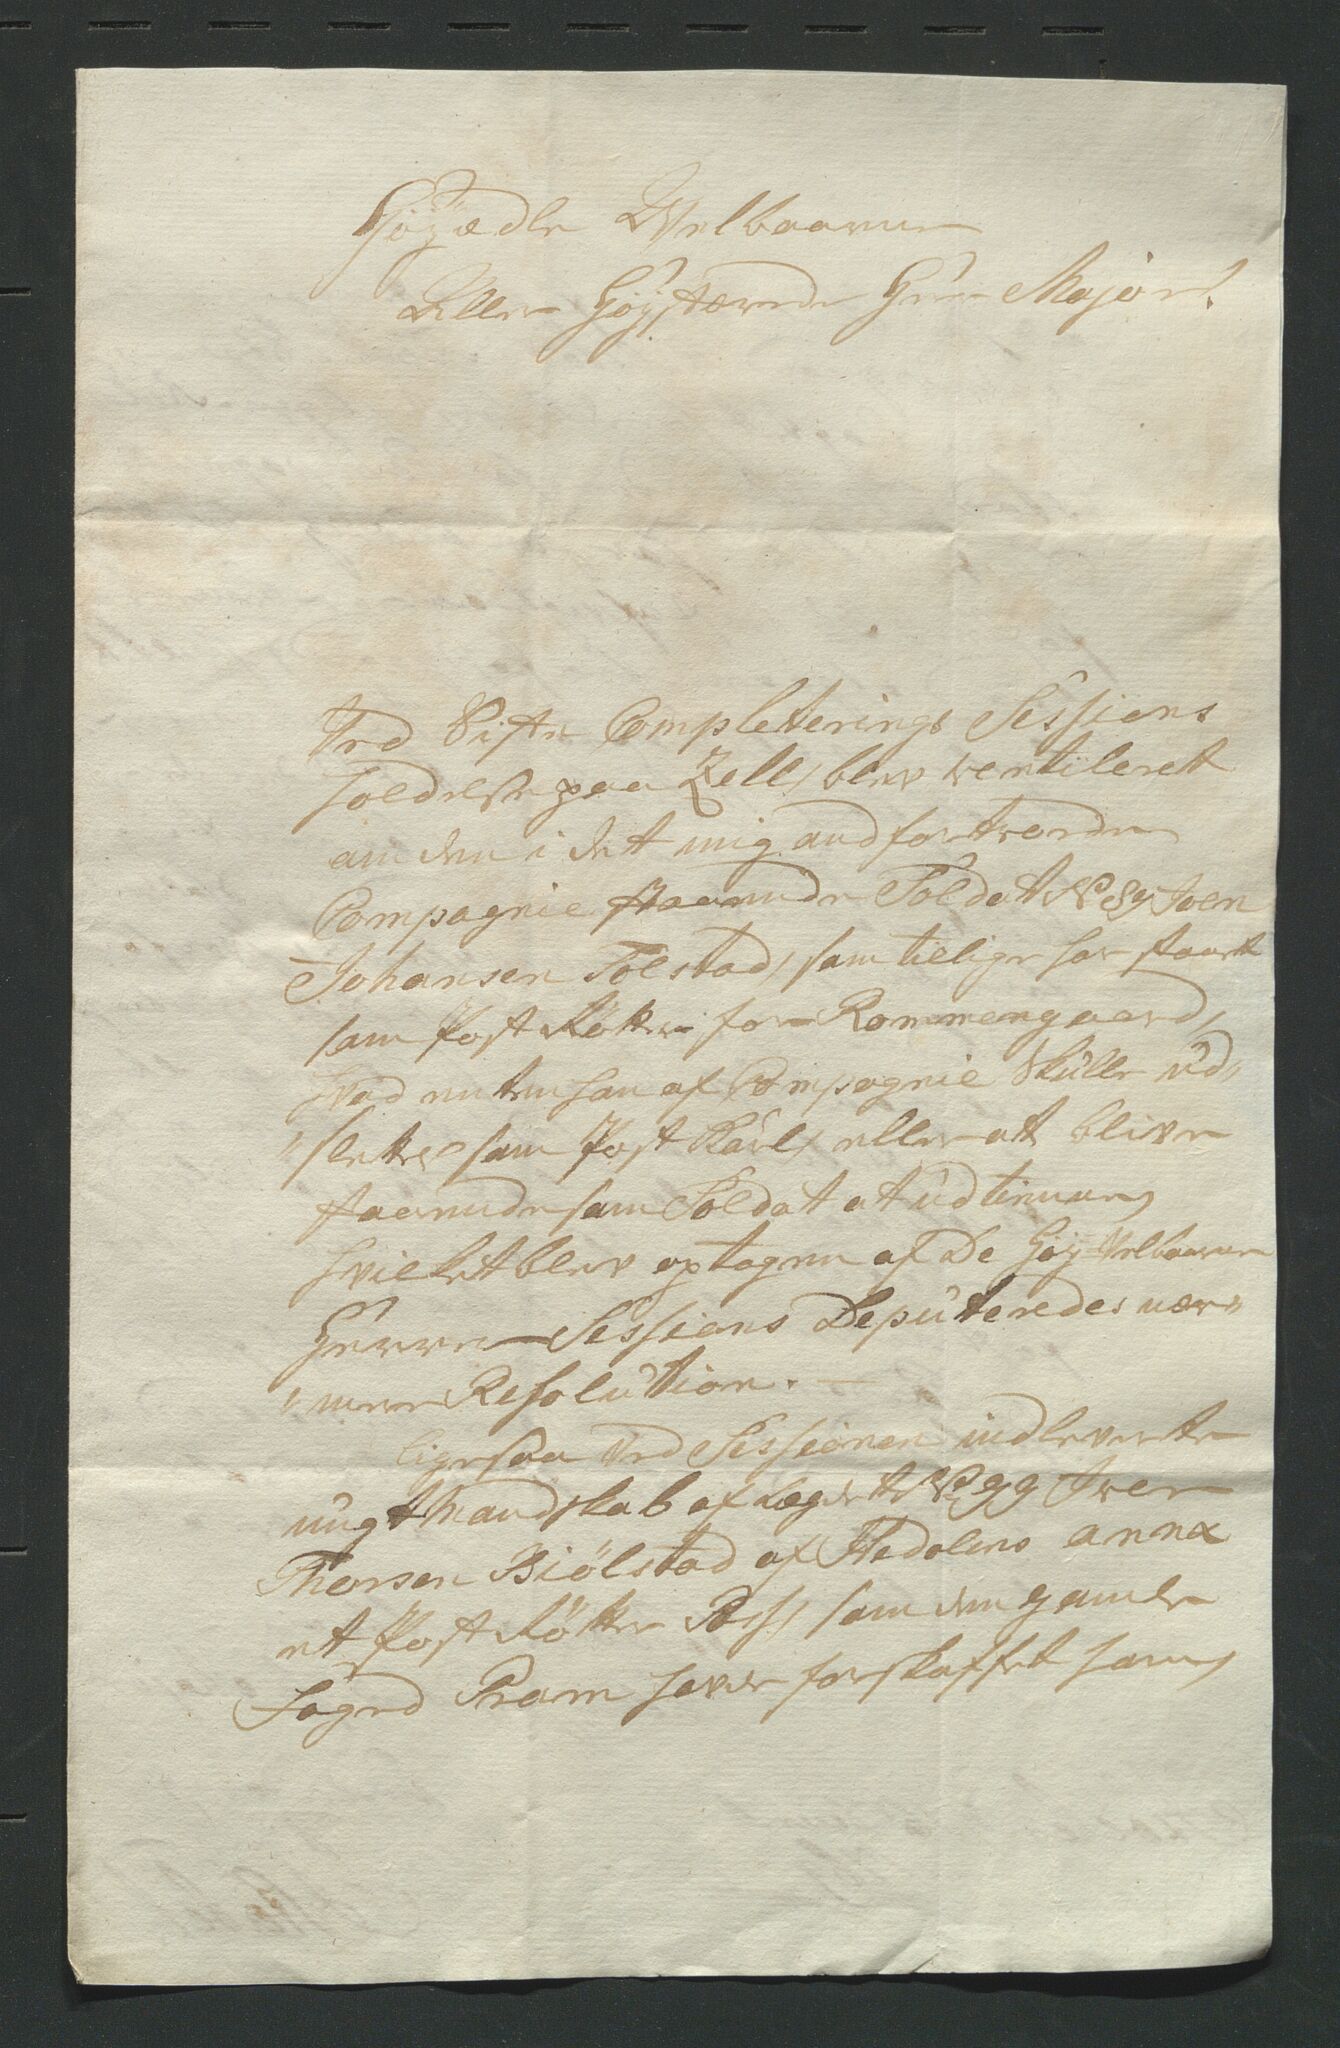 Høyædle Velbaarne
Aller Høystærede Herr Major!
Ved Siste Completerings Sessions
holdelse paa Zell, blev ventileret
om den i det mig andfortroede
Compagnie staaende Soldat No 89 Joen
Johansen Tolstad, som tillige har staaet
som Post Røtter for Rommengaard,
hvad enten han af Compagnie Skulle ud„
„slettes som Post Karl, eller at blive
staaende som Soldat at udtienne,
hvilket blev optagen af De Høy Velbaarne
Herrer Sessions Deputeredes nær„
„mere Resolution. —
Ligesaa ved Sessionen indleverte
ungt Mandskab af Lægdet No 99 Iver
Thorsen Biölstad af Hedalens annex
et Post Røtter Pass, som den gamle
Foged Pram haver forskaffet ham,